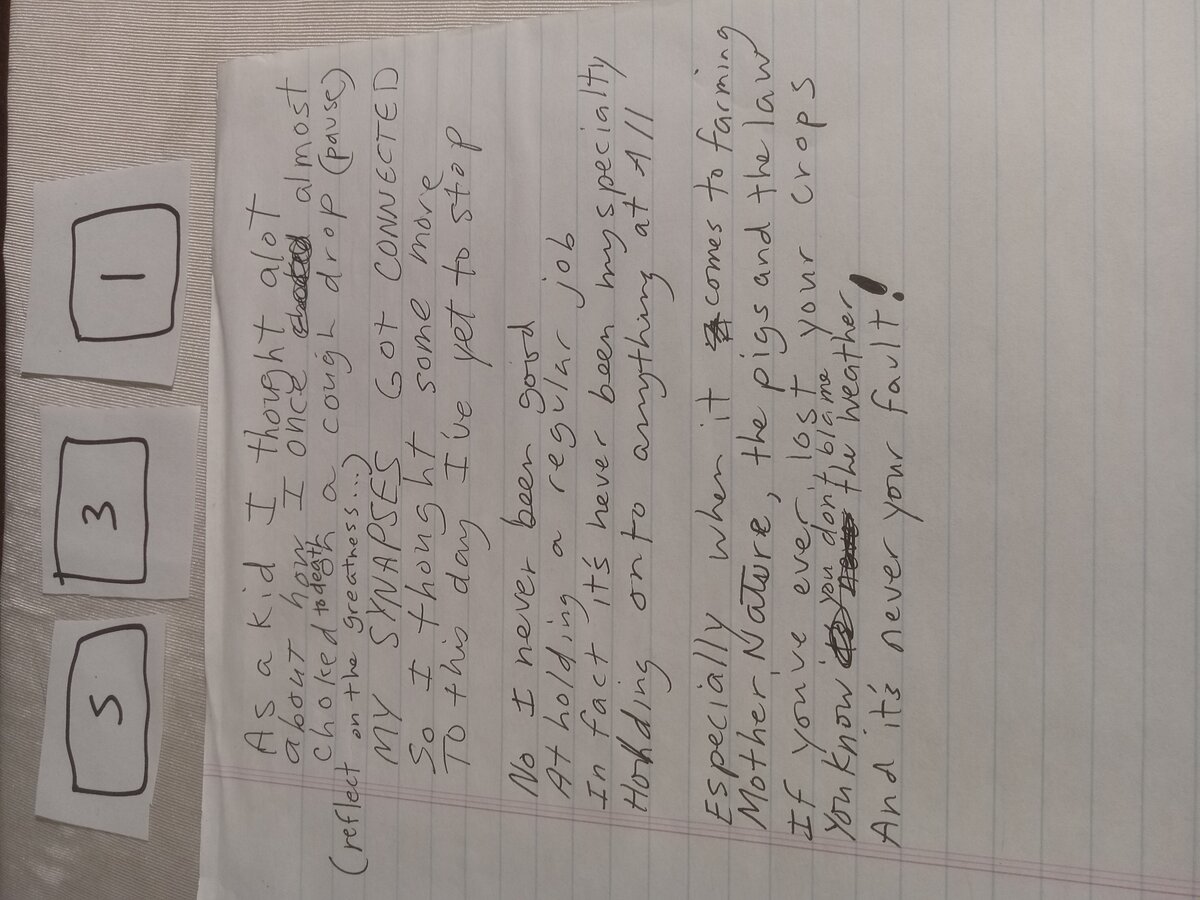 5
3
1
As a kid I thought alot
about how I once almost
choked to death a cough drop (pause)
(reflect on the greatness...)
MY SYNAPSES GOT CONNECTED
So I thought some more
To this day I've yet to stop
No I never been good
At holding a regular job
In fact it's never been my specialty
Holding onto anything at All
Especially when it comes to farming
Mother Nature, the pigs and the law
If you've ever lost your crops
You know you don't blame the weather
And it's never your fault!